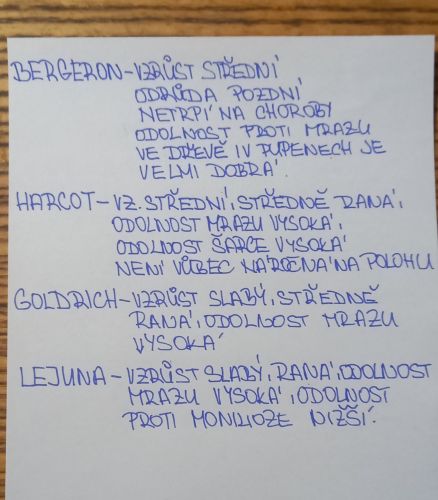 BERGERON-VZRŮST STŘEDNÍ
ODRŮDA POZDNÍ
NETRPÍ NA CHOROBY
ODOLNOST PROTI MRAZU
VE DŘEVĚ I V PUPENECH JE
VELMI DOBRÁ.
HARCOT-VZ. STŘEDNÍ, STŘEDNĚ RANÁ,
ODOLNOST MRAZU VYSOKÁ,
ODOLNOST ŠARCE VYSOKÁ
NENÍ VŮBEC NÁROČNÁ NA POLOHU
GOLDRICH-VZRŮST SLABÝ, STŘEDNĚ
RANÁ, ODOLNOST MRAZU
VYSOKÁ
LEJUNA-VZRŮST SLABÝ, RANÁ, ODOLNOST
MRAZU VYSOKÁ, ODOLNOST
PROTI MONILIOZE NIŽŠÍ.